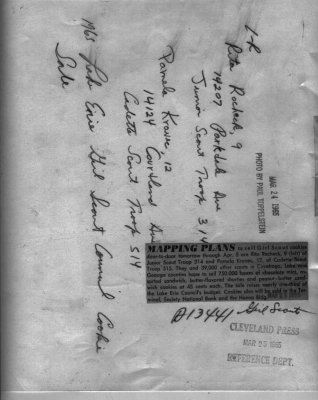 L-R
Rita Rocheck, 9
14207 Parkdale Ave
Junior Scout Troop 314
Pamela Kravec 12
14124 Courtland Ave
Cadette Scout Troop 514
1965 Lake Erie Girl Scout Council Cookie
Sale
MAR 24 1965
PHOTO BY PAUL TOPPELSTEIN
MAPPING PLANS to sell Girl Scout cookies
door-to-door tomorrow through Apr. 5 are Rita Rocheck, 9 (left) of
Junior Scout Troop 314 and Pamela Kravec, 12, of Cadette Scout
Troop 515. They and 29,000 other scouts in Cuyahoga, Lake and
Geauga counties hope to sell 750,000 boxes of chocolate mint, as-
sorted sandwich, butter-flavored shorties and peanut-butter sand-
wich cookies at 45 cents each. The sale raises nearly one-third of
the Lake Erie Council's budget. Cookies also will be sold in the Ter-
minal, Society National Bank and the Hanna Bldg.
D13441 Girl Scouts
CLEVELAND PRESS
MAR 25 1965
REFERENCE DEPT.